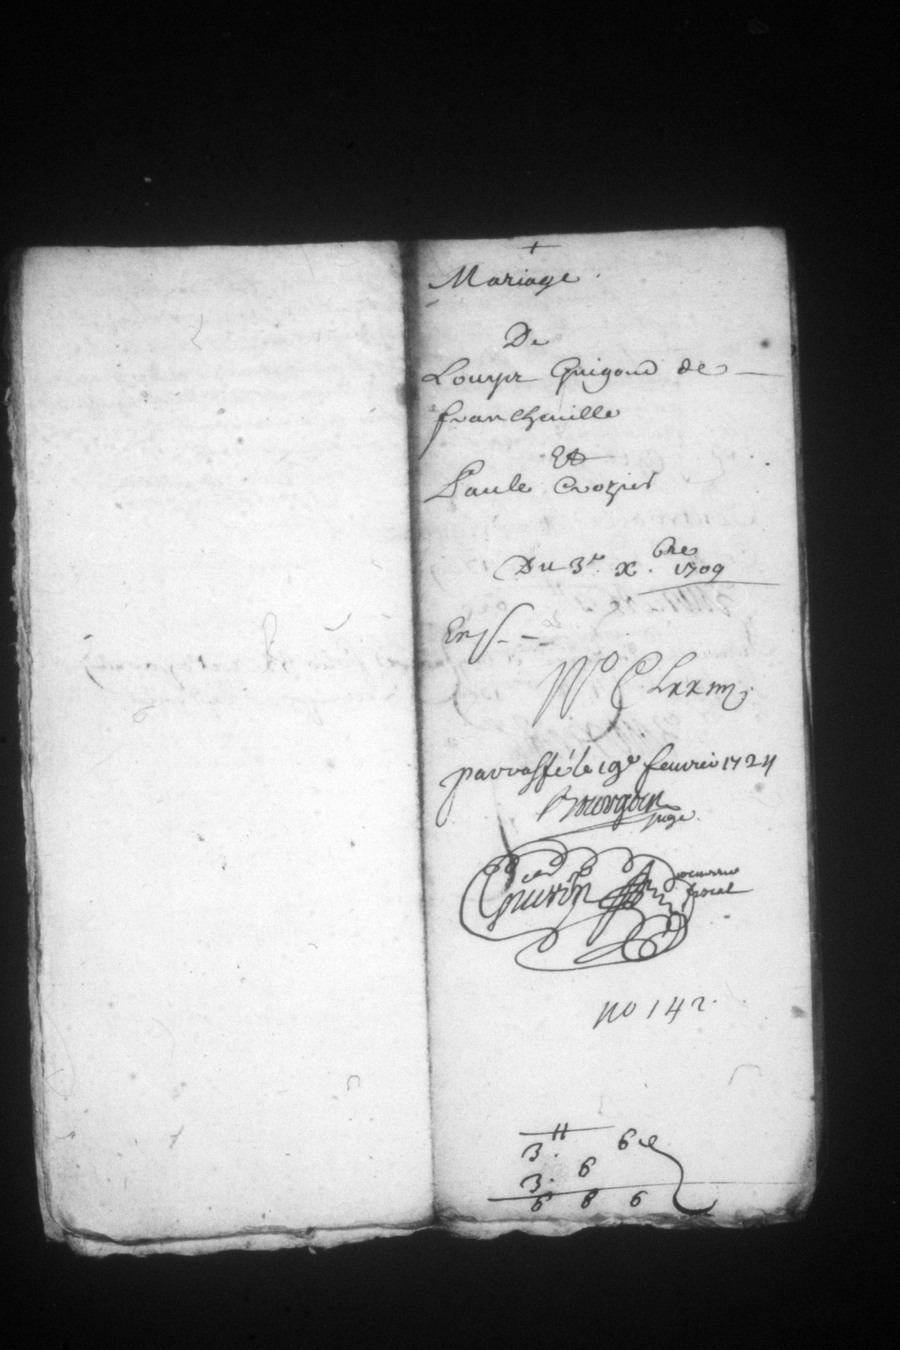 +
Mariage.
De
Louys Guigoud de —
franCheuille
Et
Paule Crozier
Du 3e. X.bre 1709
No C. Lxxm
parraffé le 19e feuvrier 1724
Bourgoin
juge
procureur
fiscal
no 142.
3. 6
3. 6
6 8 6